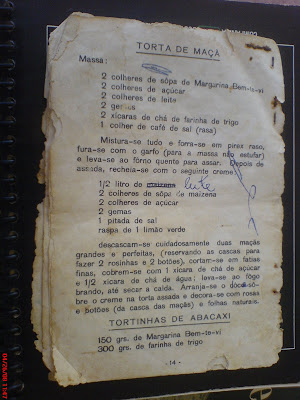 TORTA DE MAÇÃ
Massa:
2 colheres de sôpa de Margarina Bem-te-vi
2 colheres de açúcar
2 colheres de leite
2 gemas
2 xícaras de chá de farinha de trigo
1 colher de café de sal (rasa)
Mistura-se tudo e forra-se em pirex raso,
fura-se com o garfo (para a massa não estufar)
e leva-se ao fôrno quente para assar. Depois de
assada, recheia-se com o seguinte creme:
1/2 litro de maizena leite
2 colheres de sôpa de maizena
2 colheres de açúcar
2 gemas
1 pitada de sal
raspa de 1 limão verde
descascam-se cuidadosamente duas maçãs
grandes e perfeitas, (reservando as cascas para
fazer 2 rosinhas e 2 botões), cortam-se em fatias
finas, cobrem-se com 1 xícara de chá de açúcar
e 1/2 xícara de chá de água; leva-se ao fogo
brando, até secar a calda. Arranja-se o doce sô-
bre o creme na torta assada e decora-se com rosas
e botões (da casca das maçãs) e folhas naturais.
TORTINHAS DE ABACAXI
150 grs. de Margarina Bem-te-vi
300 grs. de farinha de trigo
- 14 -